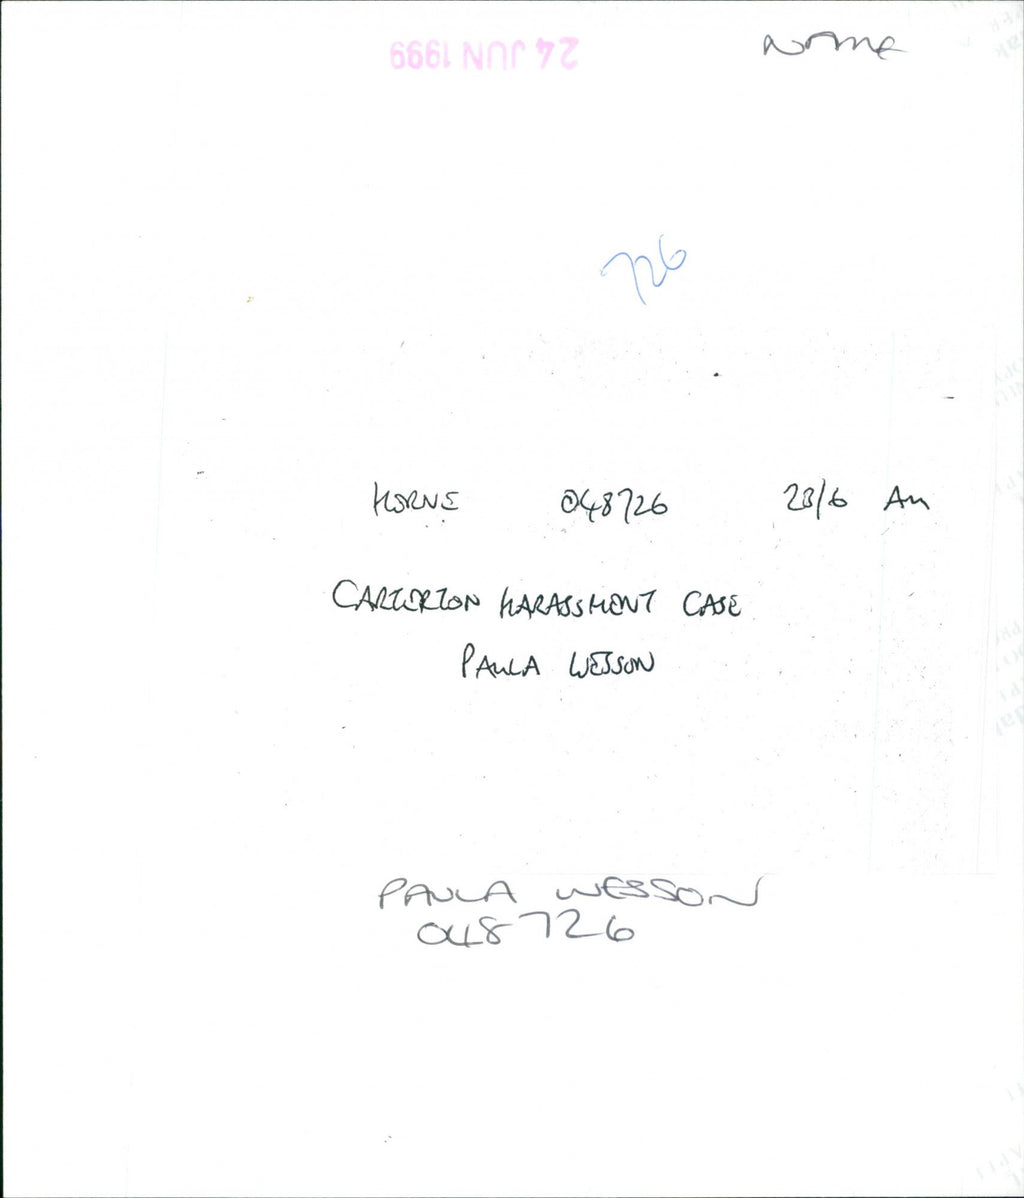 24 JUN 1999
NAME
726
HORNE 048726 23/6 AM
CARTERTON HARASSMENT CASE
PAULA WESSON
PAULA WESSON
048726